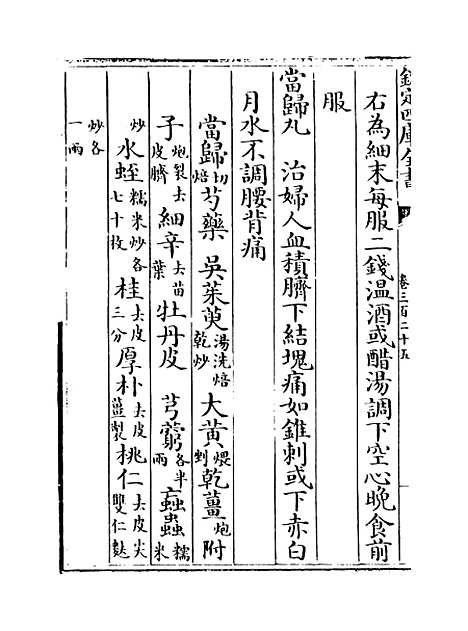 欽定四庫全書
卷三百二十五
右為細末每服二錢溫酒或醋湯調下空心晚食前
服
當歸丸 治婦人血積臍下結塊痛如錐刺或下赤白
月水不調腰背痛
當歸切焙芍藥 吳茱萸湯洗焙乾炒大黃煨剉乾薑炮附
子炮製去皮臍細辛去苗葉牡丹皮 芎藭各半兩䗪蟲糯米
炒水蛭糯米炒各七十枚桂去皮三分厚朴去皮薑製桃仁去皮尖雙仁麩
炒各一兩